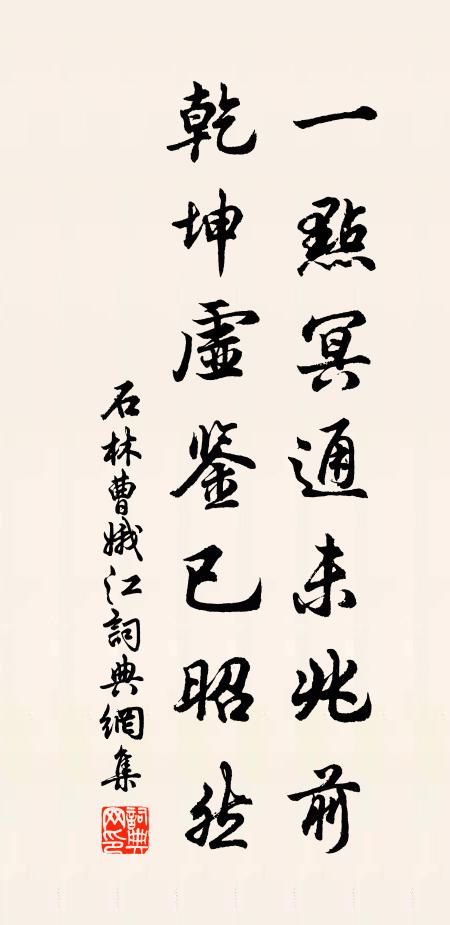 一點冥通未兆前
乾坤虛鉴已昭然
石林曹娥江詞典網集
詞典網印